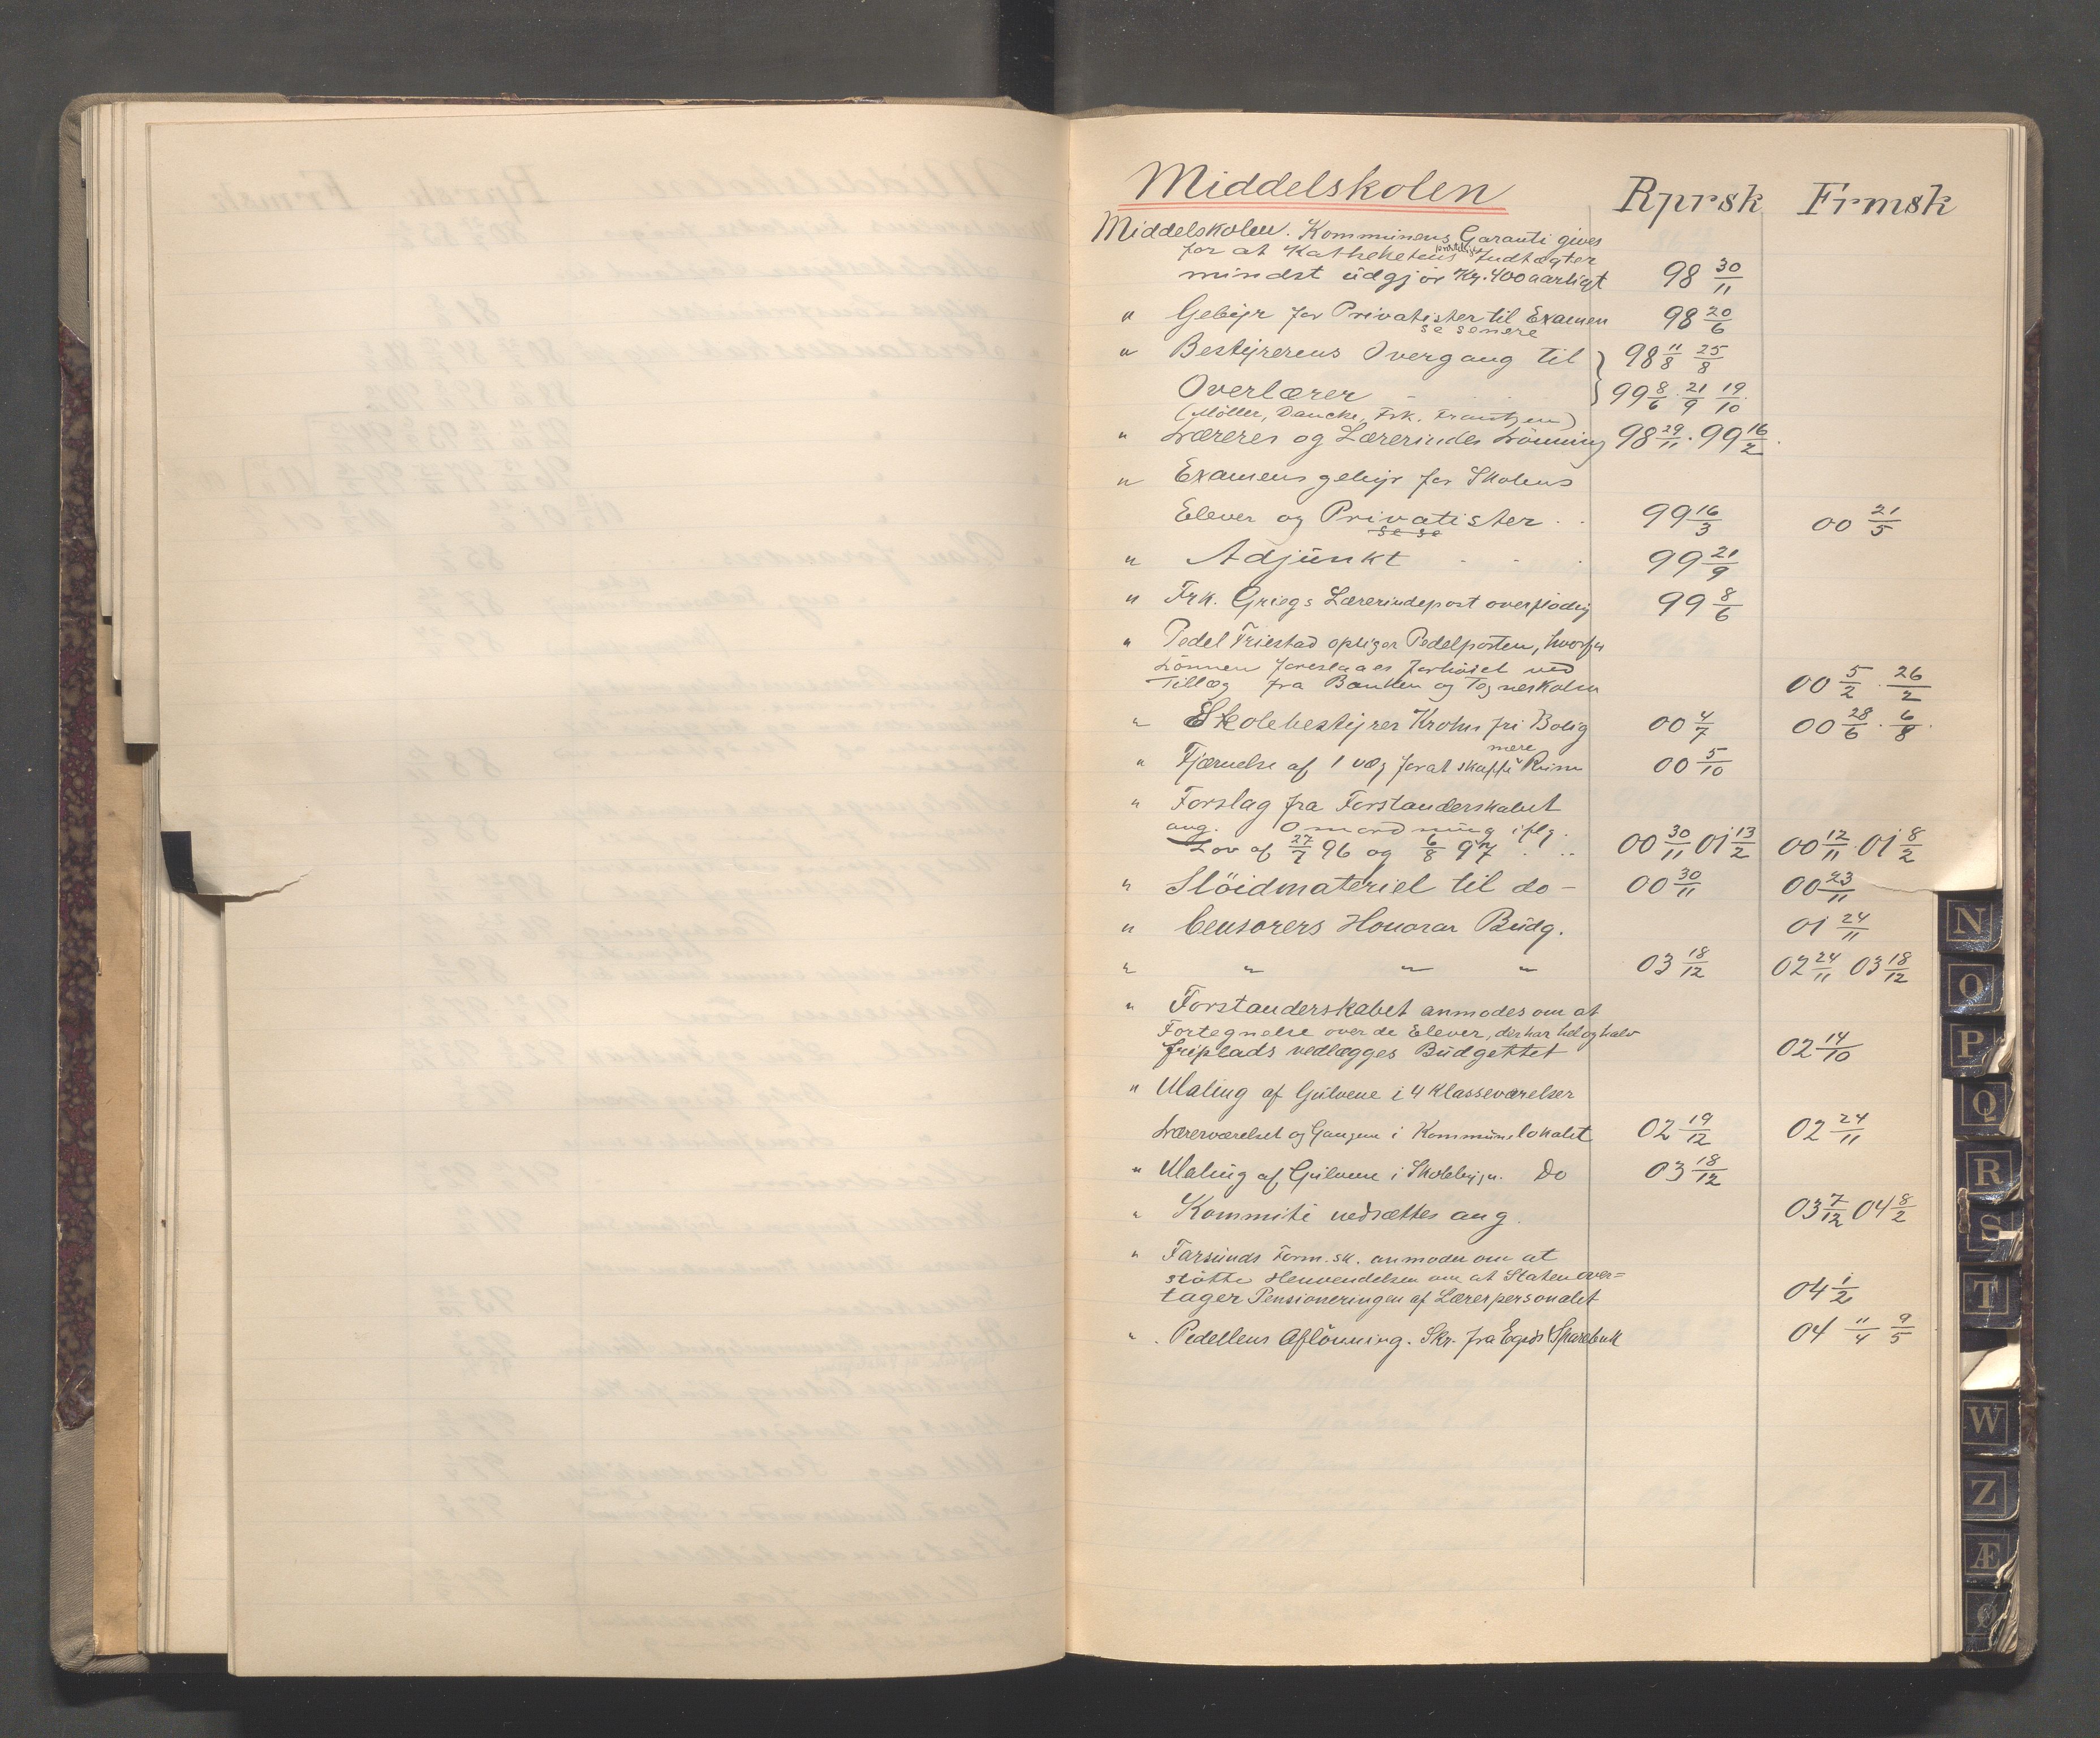 Middelskolen Rprsk Frmsk
Middelskolen. Kommunens Garanti gives
for at Kathekatens Indtægter
mindst udgjör Kr. 400 aarligt 98 30/11
" Gebyr for Privatister til Examen 98 20/6
se senere
" Bestyrerens Overgang til } 98 11/8 25/8
Overlærer - } 99 8/6 . 21/9 19/10
(Möller, Dancke, Frk. Frantzen)
" Læreres og Lærerindes Lönning 98 29/11 . 99 16/2
" Examensgebyr for Skolens
Elever og Privatister . . 99 16/3 00 21/5
se se
" Adjunkt - - . 99 21/9
" Frk. Griegs Lærerindepost overflödig 99 8/6
" Pedel Friestad opsiger Pedelposten, hvorfor
Lönnen foreslaaes forhöiet ved
Tillæg fra Banken og Tegneskolen 00 5/2 . 26/2
" Skolebestyrer Krohns fri Bolig 00 4/7 00 28/6 . 6/8
mere
" Fjærnelse af 1 væg for at skaffe Rum 00 5/10
" Forslag fra Forstanderskabet
ang. Omordning iflg.
Lov af 27/7 96 og 6/8 97 . .. 00 30/11 01 13/2 00 12/11 . 01 8/2
" Slöidmateriel til do - 00 30/11 00 23/11
" Censorers Honorar Budg. 01 24/11
" " " " 03 18/12 02 24/11 03 18/12
" Forstanderskabet anmodes om at
Fortegnelse over de Elever, der har hel og halv
friplads vedlægges Budgettet 02 14/10
" Maling af Gulvene i 4 Klasseværelser
Lærerværelset og Gangene i Kommunelokalet 02 19/12 02 24/11
" Maling af Gulvene i Skolebygn. Do 03 18/12
" Kommité nedsættes ang. 03 7/12 04 8/2
" Farsunds Form.sk. anmoder om at
stötte Henvendelsen om at Staten over=
tager Pensioneringen af Lærerpersonalet 04 1/2
" . Pedellens Aflönning. Skr. fra Egsds Sparebank 04 11/4 9/5
N
O
P
Q
R
S
T
W
Z
Æ
Ø